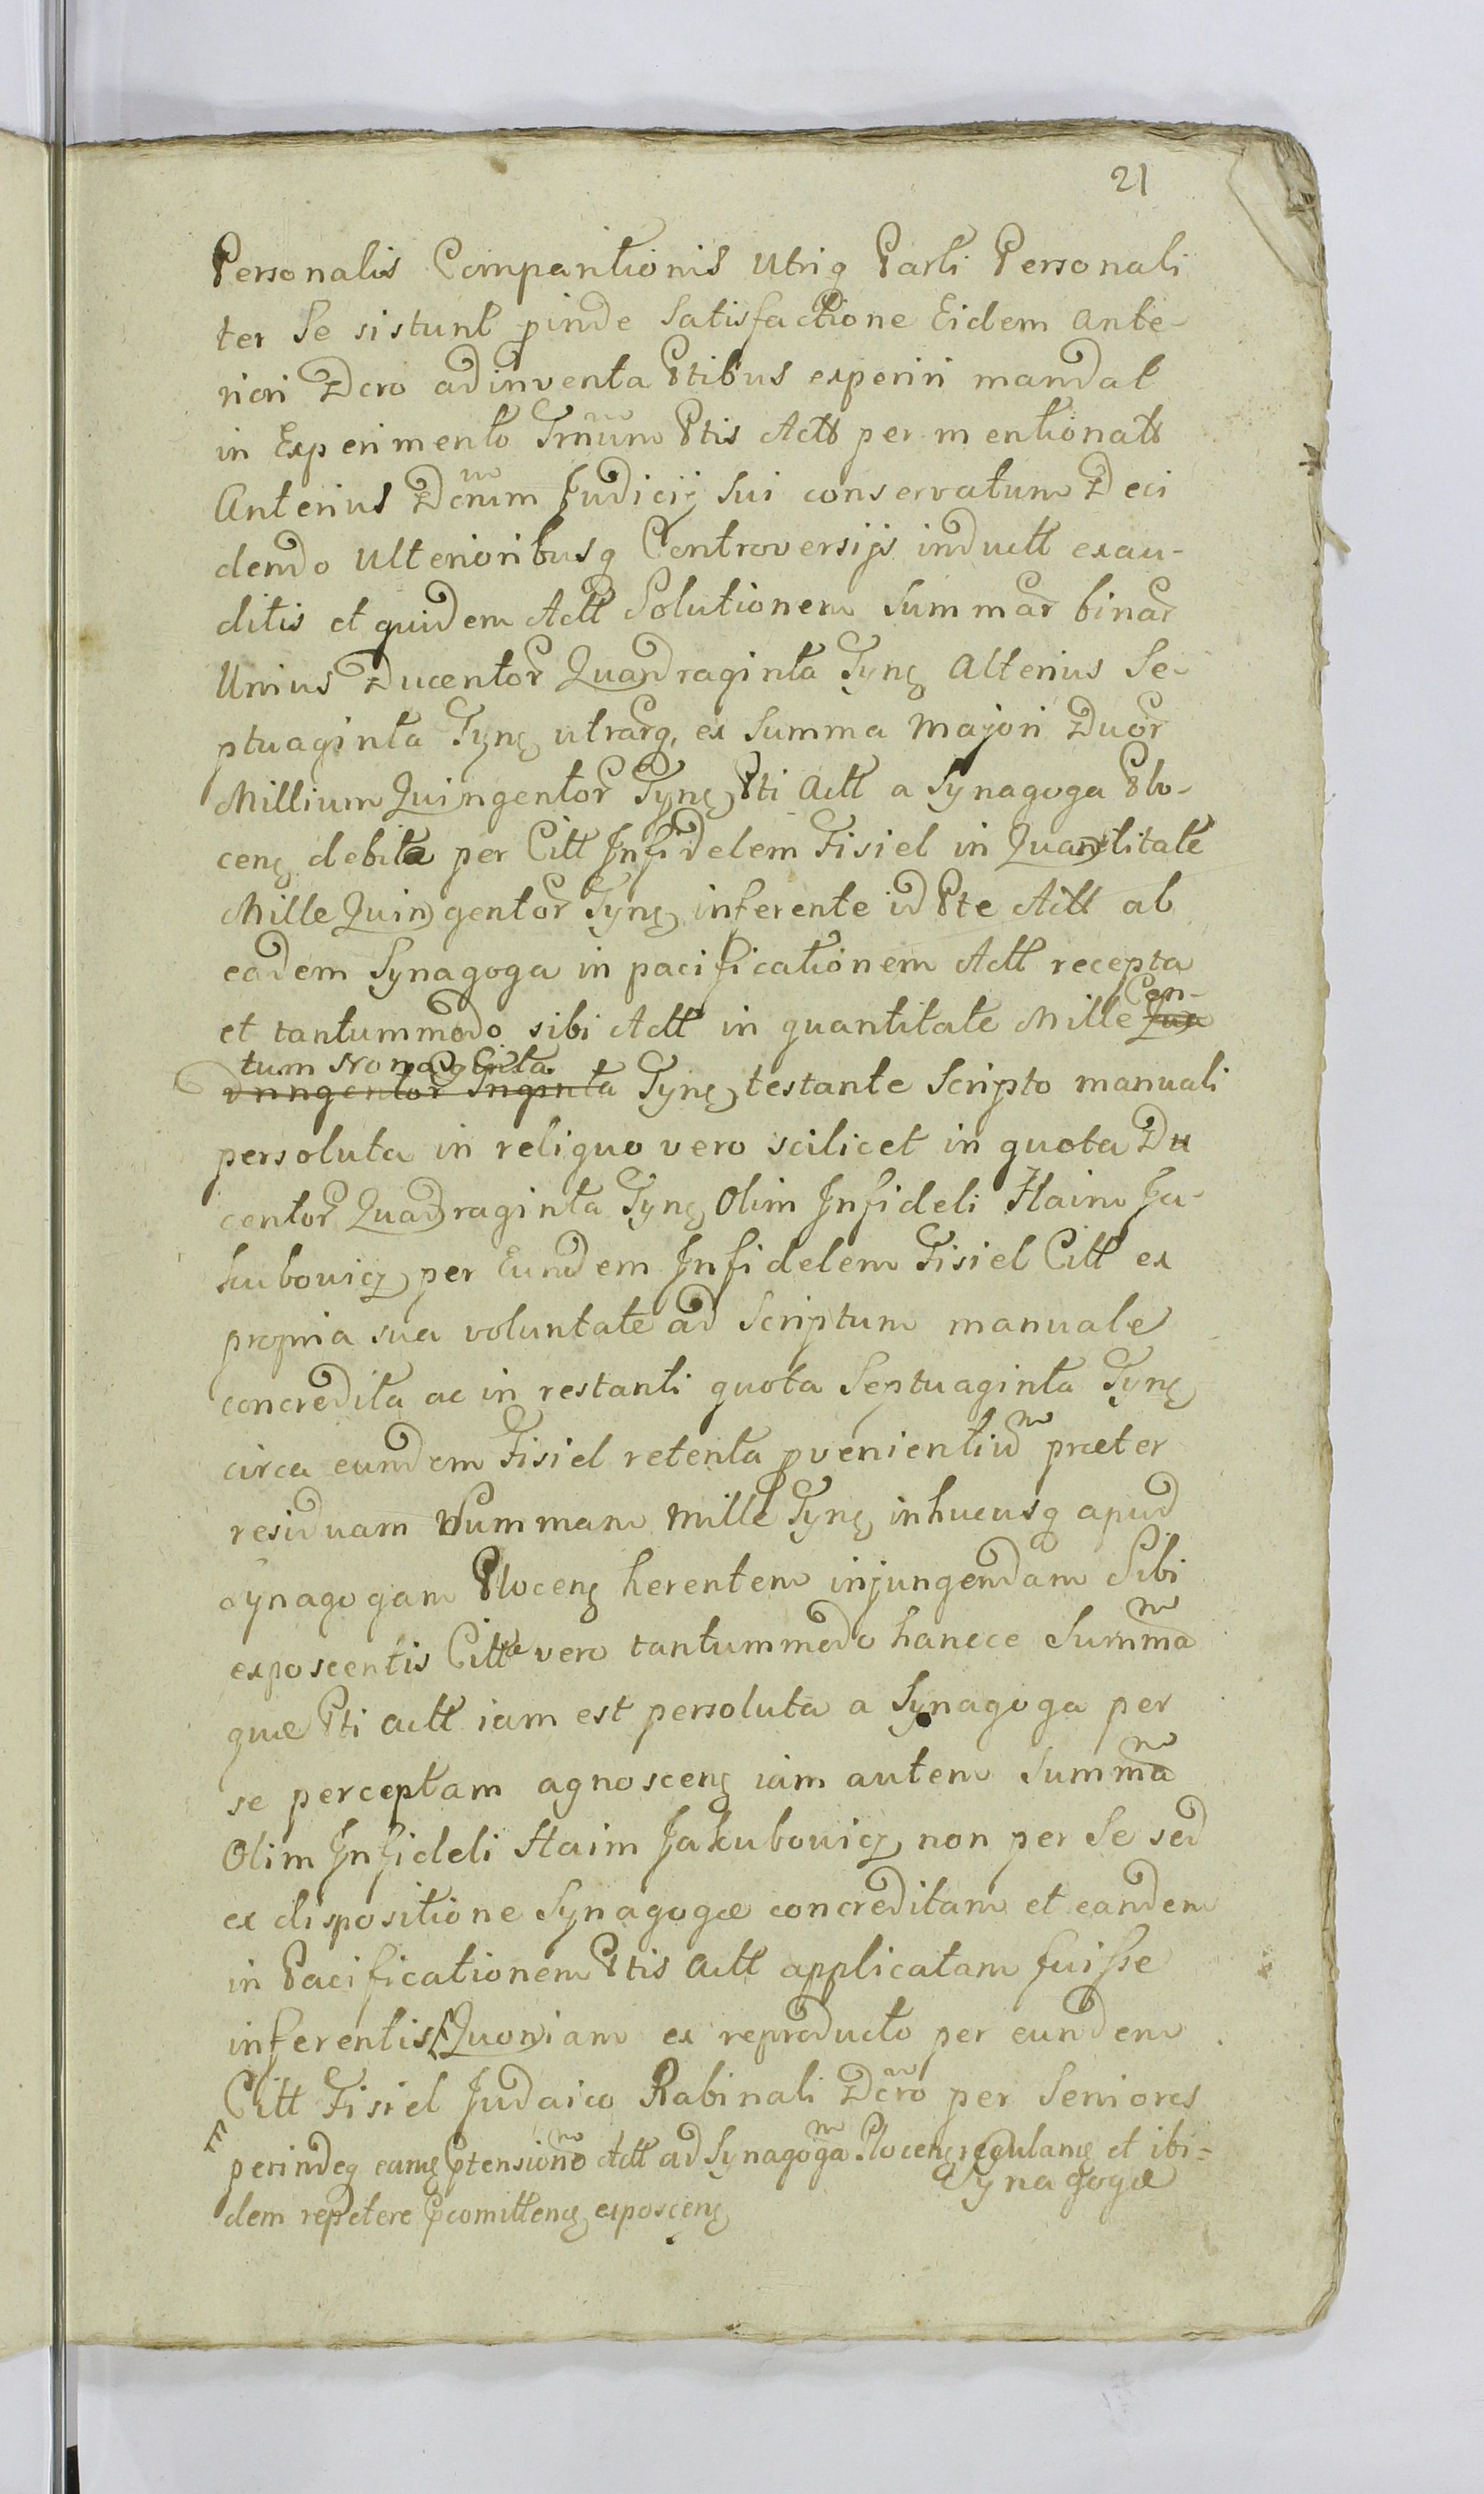 21
Personalis Comparitionis Utriq Parti Personali
ter Se sistunt pinde Satisfactione Eidem Ante-
riori Dcro adinventa Ptibus experiri mandat
in Experimento Tmum Ptis Actt per mentionatt
Anterius Dcrum Judicij Sui conservatum Deci
dendo Ulterioribusq Controversijs inductt exau-
ditis et quidem Actt Solutionem Summar binar
Unius Ducentor Quadraginta Tyng Alterius Se-
ptuaginta Tyng utrarq, ex Summa Majori Duor
Millium Quingentor Tyng Pti Actt a Synagoga Plo-
ceng debita per Citt Infidelem Fisiel in Quantitate
Mille Quingentor Tyng inferente id Pte Actt ab
eadem Synagoga in pacificationem Actt recepta
et tantummodo sibi Actt in quantitate Mille Cen-
tum Nonaginta Tyng testante Scripto manuali
persoluta in reliquo vero scilicet in quota Du
centor Quadraginta Tyng Olim Infideli Haim Ja-
kubouicz per Eundem Infidelem Fisiel Citt ex
propria sua voluntate ad Scriptum manuale
concredita ac in restanti quota Septuaginta Tyng
circa eundem Fisiel retenta pvenientium præter
residuam Summam Mille Tyng inhucusq apud
Synagogam Ploceng herentem injungendam Sibi
exposcentis Citta vero tantummodo hancce Summa
quæ Pti actt iam est persoluta a Synagoga per
se perceptam agnosceng iam autem Summa
Olim Infideli Haim Jakubouicz non per Se sed
ex dispositione Synagogæ concreditam et eandem
in Pacificationem Ptis Actt applicatam fuisse
inferentis Quoniam ex reproducto per eundem
Citt Fisiel Judaico Rabinali Dcro per Seniores
perindeq eamq Ptensione Actt ad Synagoga Ploceng regulang et ibi=
Synagogæ
dem repetere Pcomitteng exposceng